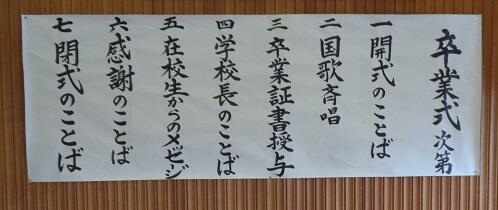 卒業式次第
一 開式のことば
二 国歌斉唱
三 卒業証書授与
四 学校長のことば
五 在校生からのメッセージ
六 感謝のことば
七 閉式のことば